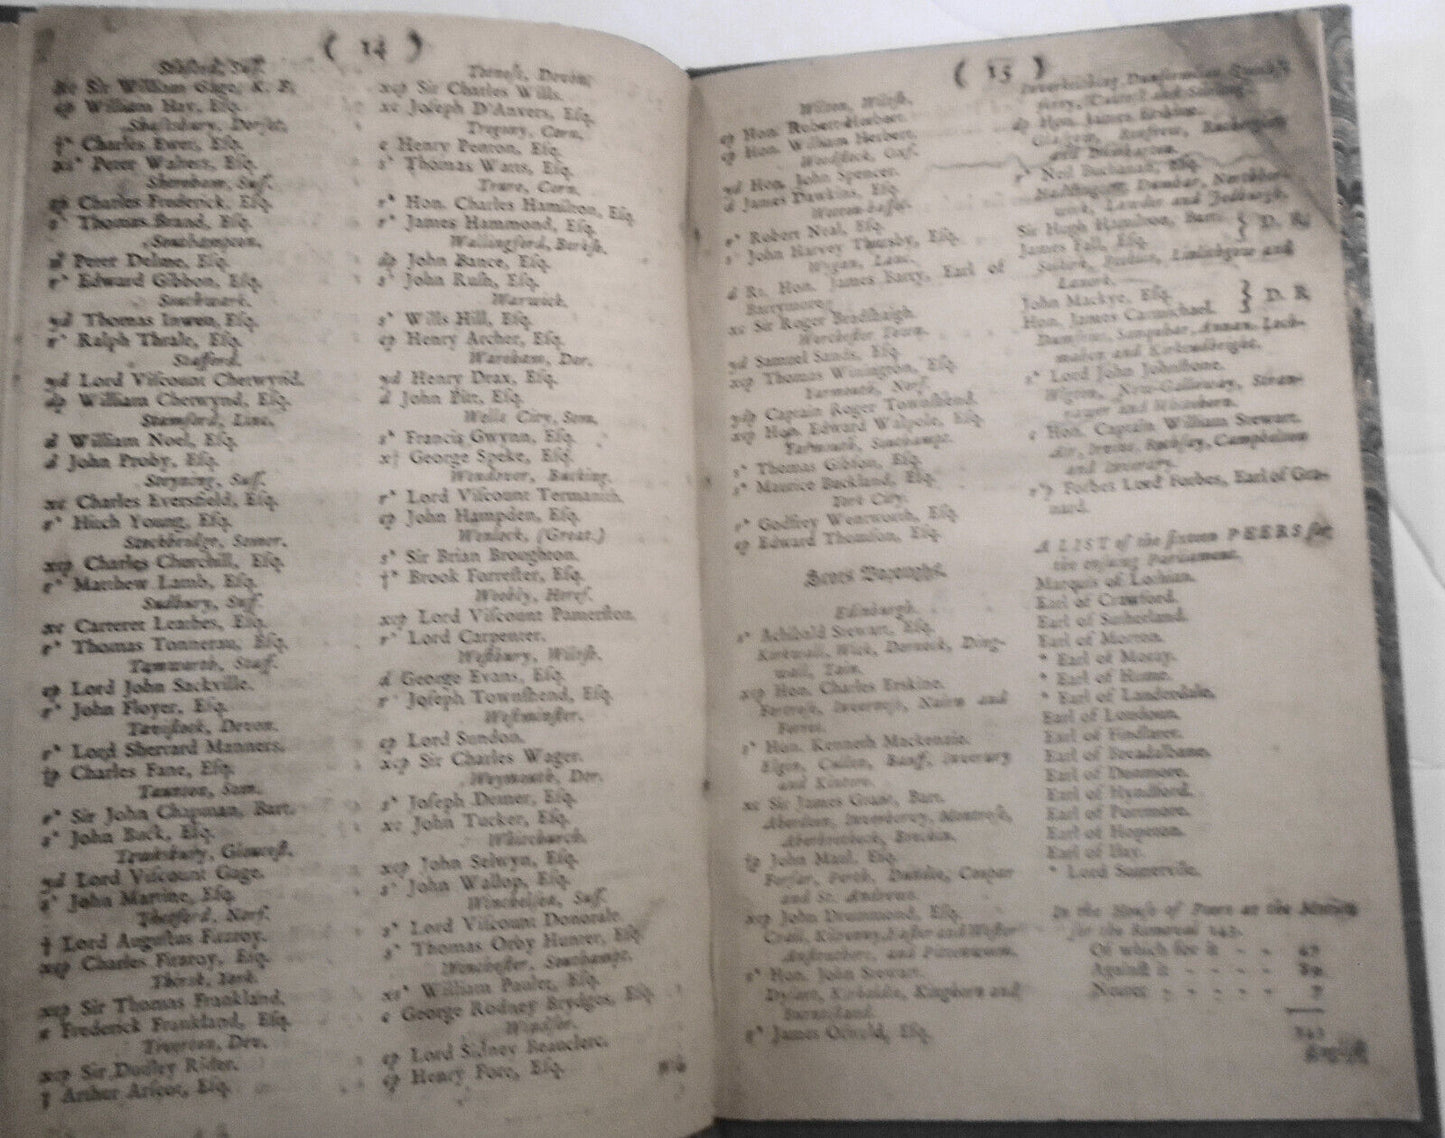 ( 14 )
Seaford, Suss.
xc Sir William Gage, K. B.
cp William Hay, Esq.
Shaftsbury, Dorset.
†* Charles Ewer, Esq.
xs* Peter Walters, Esq.
Shoreham, Suss.
cp Charles Frederick, Esq.
s* Thomas Brand, Esq.
Southampton.
d Peter Delme, Esq.
r* Edward Gibbon, Esq.
Southwark.
yd Thomas Inwen, Esq.
r* Ralph Thrale, Esq.
Stafford.
yd Lord Viscount Chetwynd.
dp William Chetwynd, Esq.
Stamford, Linc.
d William Noel, Esq.
d John Proby, Esq.
Steyning, Suss.
xc Charles Eversfield, Esq.
s* Hitch Young, Esq.
Stockbridge, Somer.
xcp Charles Churchill, Esq.
r* Matthew Lamb, Esq.
Sudbury, Suff.
xc Carteret Leathes, Esq.
r* Thomas Tonnerau, Esq.
Tamworth, Staff.
cp Lord John Sackville.
r* John Floyer, Esq.
Tavistock, Devon.
r* Lord Sherrard Manners.
†p Charles Fane, Esq.
Taunton, Som.
s* Sir John Chapman, Bart.
s* John Buck, Esq.
Tewksbury, Gloucest.
yd Lord Viscount Gage.
s* John Martine, Esq.
Thetford, Norf.
† Lord Augustus Fitzroy.
xcp Charles Fitzroy, Esq.
Thirsk, York.
xcp Sir Thomas Frankland.
c Frederick Frankland, Esq.
Tiverton, Dev.
xcp Sir Dudley Rider.
Arthur Arscot, Esq.
Totness, Devon.
xcp Sir Charles Wills.
xc Joseph D'Anvers, Esq.
Tregony, Corn.
c Henry Penton, Esq.
s* Thomas Watts, Esq.
Truro, Corn.
r* Hon. Charles Hamilton, Esq.
r* James Hammond, Esq.
Wallingford, Berksh.
dp John Bance, Esq.
s* John Rush, Esq.
Warwick.
s* Wills Hill, Esq.
cp Henry Archer, Esq.
Wareham, Dor.
yd Henry Drax, Esq.
d John Pitt, Esq.
Wells City, Som.
s* Francis Gwynn, Esq.
x† George Speke, Esq.
Wendover, Bucking.
r* Lord Viscount Termanich.
cp John Hampden, Esq.
Wenlock, (Great.)
s* Sir Brian Broughton.
†* Brook Forrester, Esq.
Weobly, Heref.
xcp Lord Viscount Pamerston.
r* Lord Carpenter.
Westbury, Wiltsh.
d George Evans, Esq.
r* Joseph Townshend, Esq.
Westminster.
cp Lord Sundon.
xcp Sir Charles Wager.
Weymouth, Dor.
s* Joseph Demer, Esq.
xc John Tucker, Esq.
Whitchurch.
xcp John Selwyn, Esq.
s* John Wallop, Esq.
Winchelsea, Suss.
s* Lord Viscount Donorale.
s* Thomas Orby Hunter, Esq.
Winchester, Southampt.
xs* William Pauler, Esq.
c George Rodney Brydges, Esq
Windsor.
cp Lord Sidney Beauclerc.
cp Henry Fote, Esq.
Wil-
( 15 )
Wilton, Wiltsh.
cp Hon. Robert Herbert.
cp Hon. William Herbert.
Woodstock, Oxf.
yd Hon. John Spencer.
d James Dawkins, Esq.
Wootton-basset.
r* Robert Neal, Esq.
s* John Harvey Thursby, Esq.
Wigan, Lanc.
d Rt. Hon. James Barry, Earl of
Barrymore.
xc Sir Roger Bradshaigh.
Worchester Town.
yd Samuel Sands, Esq.
xcp Thomas Winington, Esq.
Yarmouth, Norf.
ydp Captain Roger Townshend.
xcp Hon. Edward Walpole, Esq.
Yarmouth, Southampt.
s* Thomas Gibson, Esq.
s* Maurice Buckland, Esq.
York City.
s* Godfrey Wentworth, Esq.
cp Edward Thomson, Esq.
Scots Boroughs.
Edinburgh.
s* Achibald Stewart, Esq.
Kirkwall, Wick, Dornock, Ding-
wall, Tain.
xcp Hon. Charles Erskine.
Fortrose, Inverness, Nairn and
Forres.
s* Hon. Kenneth Mackenzie.
Elgin, Cullen, Banff, Inverury
and Kintore.
xc Sir James Grant, Bart.
Aberdeen, Inverbervy, Montross,
Aberbrothock, Brechin.
†p John Maul, Esq.
Forfar, Perth, Dundee, Couper
and St. Andrews.
xcp John Drummond, Esq.
Crail, Kilrenny, Easter and Wester
Anstruthers, and Pittenweem.
s* Hon. John Stewart.
Dysart, Kirkaldie, Kinghorn and
Burntisland.
s* James Oswald, Esq.
Inverkeithing, Dunfermline, Queensf-
ferry, Culross and Sterling.
dp Hon. James Erskine.
Glasgow, Renfrew, Rutherglen
and Dunbarton.
r* Neil Buchanan, Esq.
Haddington, Dunbar, Northber-
wick, Lauder and Jedburgh.
Sir Hugh Hamilton, Bart. } D. R.
James Fall, Esq.
Selkirk, Peebles, Linlithgow and
Lanerk.
John Mackye, Esq. } D. R
Hon. James Carmichael.
Dumfries, Sanquhar, Annan, Loch-
maben and Kirkcudbright.
s* Lord John Johnstone.
Wigton, New-Galloway, Stran-
rawer and Whitehorn.
c Hon. Captain William Stewart.
Air, Irwine, Rothsay, Campbeltown
and Inverary.
r*p Forbes Lord Forbes, Earl of Gra-
nard.
A LIST of the sixteen PEERS for
the ensuing Parliament.
Marquis of Lothian.
Earl of Crawford.
Earl of Sutherland.
Earl of Morton.
* Earl of Moray.
* Earl of Hume.
* Earl of Lauderdale.
Earl of Loudoun.
Earl of Findlater.
Earl of Breadalbane.
Earl of Dunmore.
Earl of Hyndford.
Earl of Portmore.
Earl of Hopeton.
Earl of Ilay.
* Lord Somerville.
In the House of Peers at the Motion
for the Removal 142.
Of which for it - - 47
Against it - - - - 89
Neuter - - - - -
English